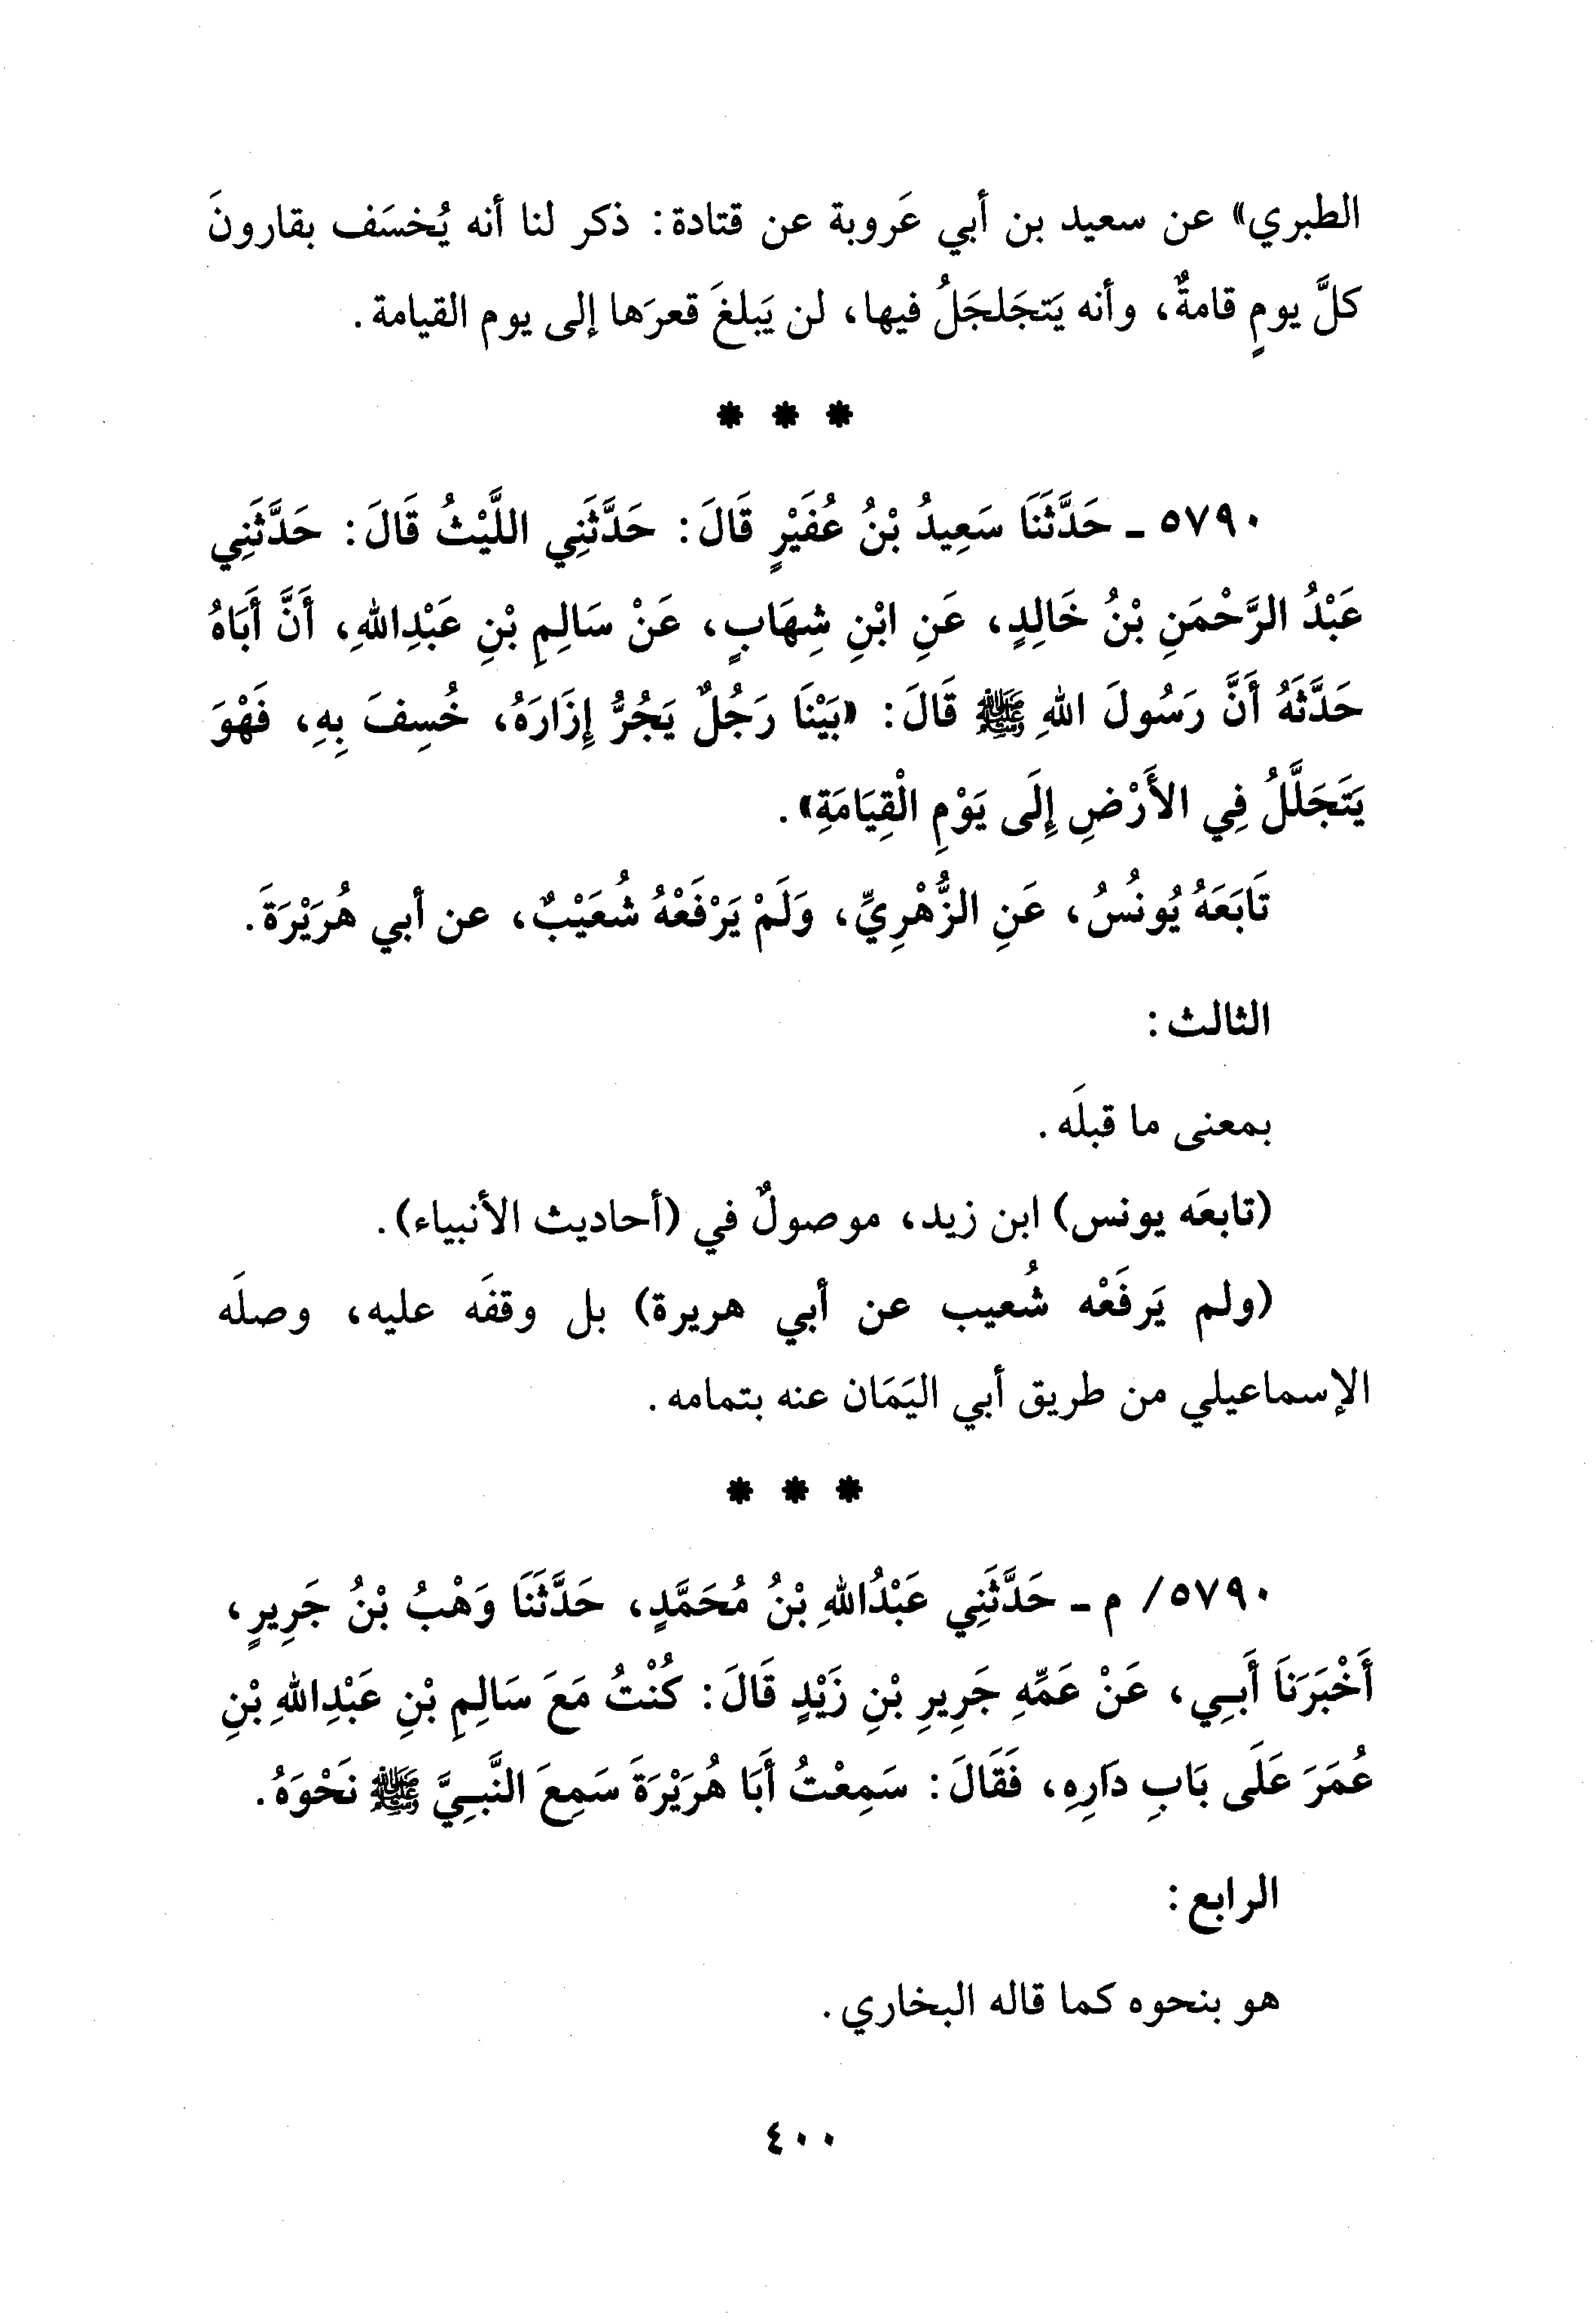 الطبري» عن سعيد بن أبي عَروبة عن قتادة: ذكر لنا أنه يُخسَف بقارونَ
كلَّ يومٍ قامةٌ، وأنه يَتجَلجَلُ فيها، لن يَبلغَ قعرَها إلى يوم القيامة.
* * *
٥٧٩٠ ـ حَدَّثَنَا سَعِيدُ بْنُ عُفَيْرٍ قَالَ: حَدَّثَنِي اللَّيْثُ قَالَ: حَدَّثَنِي
عَبْدُ الرَّحْمَنِ بْنُ خَالِدٍ، عَنِ ابْنِ شِهَابٍ، عَنْ سَالِمِ بْنِ عَبْدِاللهِ، أَنَّ أَبَاهُ
حَدَّثَهُ أَنَّ رَسُولَ اللهِ ﷺ قَالَ: «بَيْنَا رَجُلٌ يَجُرُّ إِزَارَهُ، خُسِفَ بِهِ، فَهْوَ
يَتَجَلَّلُ فِي الأَرْضِ إِلَى يَوْمِ الْقِيَامَةِ».
تَابَعَهُ يُونُسُ، عَنِ الزُّهْرِيِّ، وَلَمْ يَرْفَعْهُ شُعَيْبٌ، عن أبي هُرَيْرَةَ.
الثالث:
بمعنى ما قبلَه.
(تابعَه يونس) ابن زيد، موصولٌ في (أحاديث الأنبياء).
(ولم يَرفَعْه شُعيب عن أبي هريرة) بل وقفَه عليه، وصلَه
الإسماعيلي من طريق أبي اليَمَان عنه بتمامه.
* * *
٥٧٩٠/ م ـ حَدَّثَنِي عَبْدُاللهِ بْنُ مُحَمَّدٍ، حَدَّثَنَا وَهْبُ بْنُ جَرِيرٍ،
أَخْبَرَنَا أَبِي، عَنْ عَمِّهِ جَرِيرِ بْنِ زَيْدٍ قَالَ: كُنْتُ مَعَ سَالِمِ بْنِ عَبْدِاللهِ بْنِ
عُمَرَ عَلَى بَابِ دَارِهِ، فَقَالَ: سَمِعْتُ أَبَا هُرَيْرَةَ سَمِعَ النَّبِيَّ ﷺ نَحْوَهُ.
الرابع:
هو بنحوه كما قاله البخاري.
٤٠٠